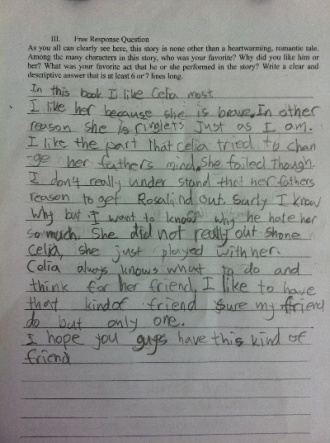 III. Free Response Question
As you all can clearly see here, this story is none other than a heartwarming, romantic tale.
Among the many characters in this story, who was your favorite? Why did you like him or
her? What was your favorite act that he or she performed in the story? Write a clear and
descriptive answer that is at least 6 or 7 lines long.
In this book I like Celia most
I like her because she is brave. In other
reason she is ringlets Just as I am.
I like the part that celia tried to chan
-ge her fathers mind. She foiled though.
I don't really under stand that her fathers
reason to get Rosalind out. Surly I know
Why but I want to know why he hate her
so much. She did not really out shone
Celia, she just played with her.
Celia always knows what to do and
think for her friend, I like to have
that kind of friend sure my friend
do but only one.
I hope you guys have this kind of
friend